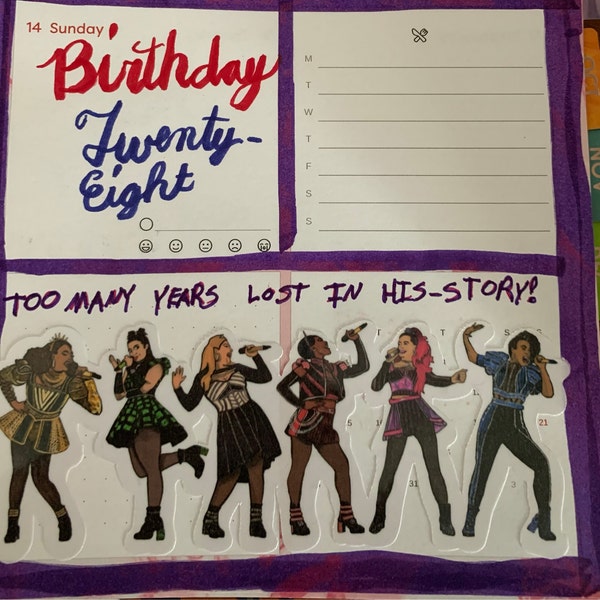 14 Sunday
Birthday
Twenty-
Eight
M
T
W
T
F
S
S
TOO MANY YEARS LOST IN HIS-STORY!
T F S S
21
31
NOV